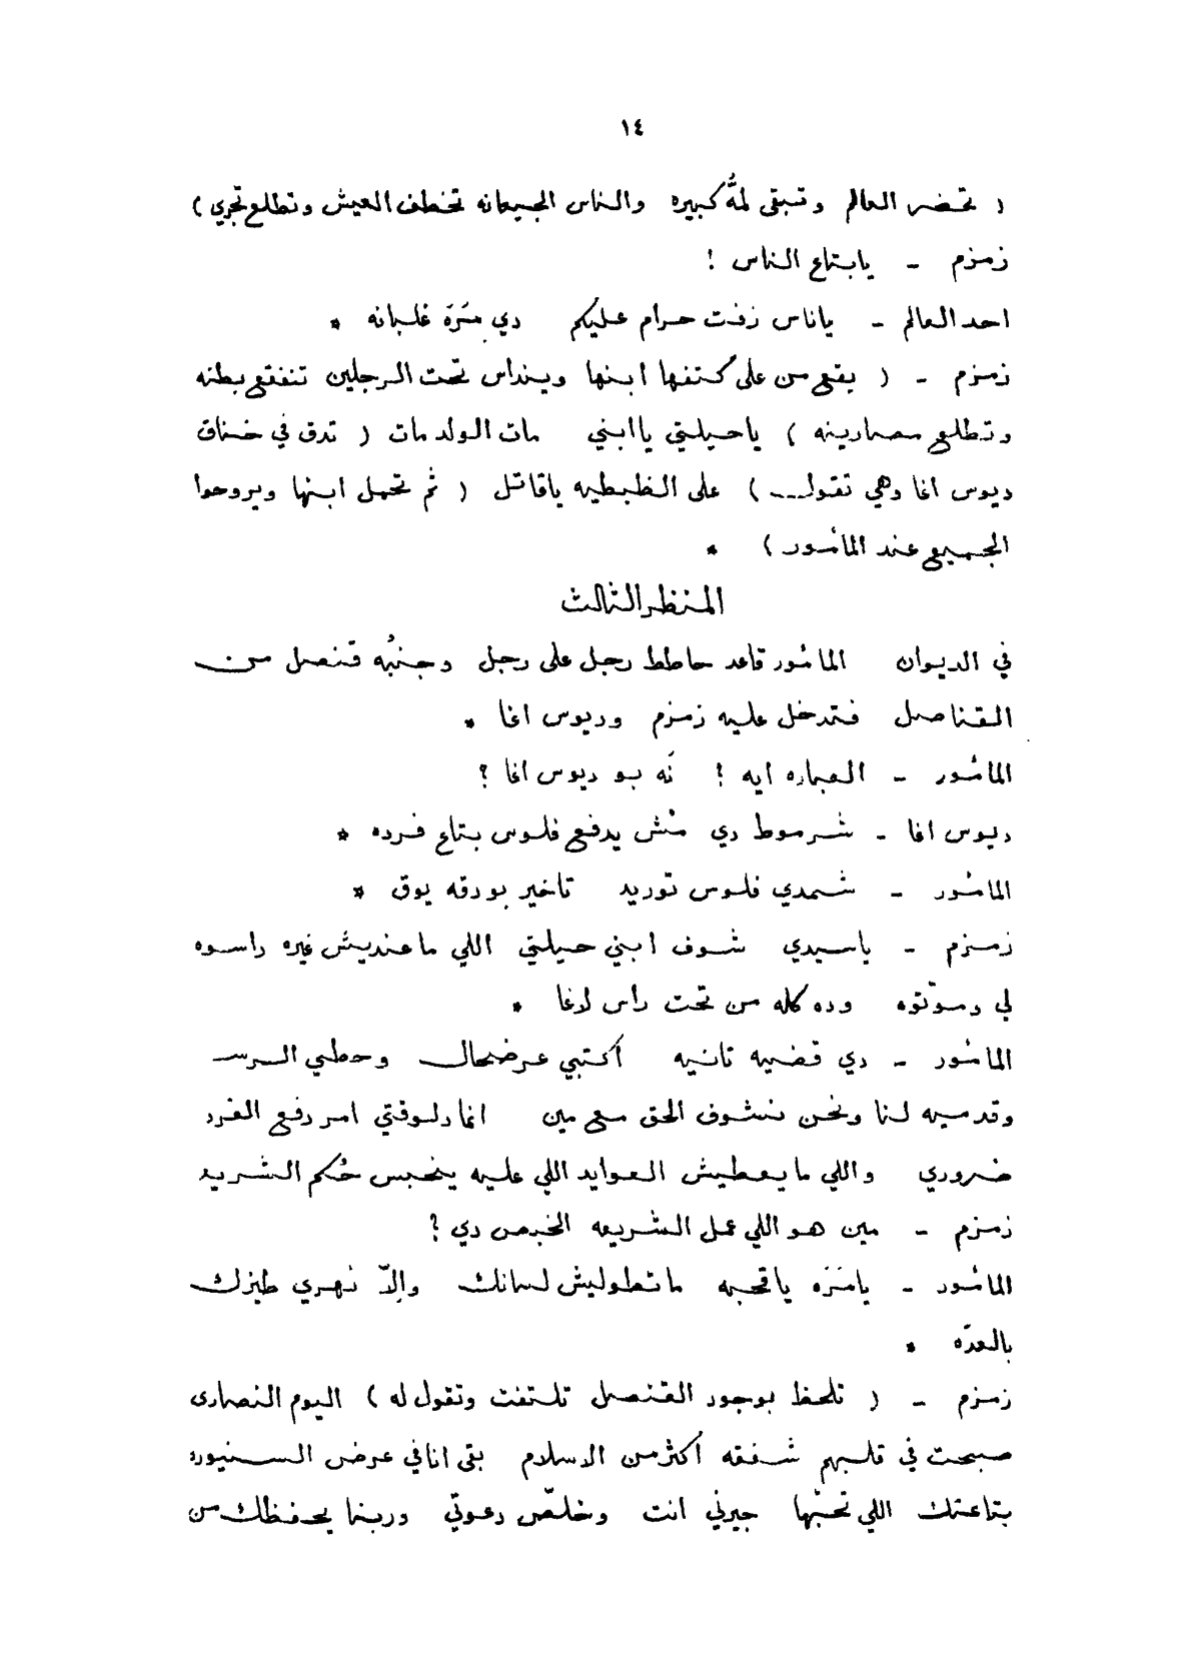 ١٤
( تحضر العالم وتبقى لمَّه كبيره والناس الجيعانه تخطف العيش وتطلع تجري )
زمزم - يابتاع الناس !
احد العالم - ياناس زفت حرام عليكم دي مَرَه غلبانه *
زمزم - ( يقع من على كتفها ابنها وينداس تحت الرجلين تنفقع بطنه
وتطلع مصارينه ) ياحيلتي ياابني مات الولد مات ( تدق في خناق
ديوس اغا وهي تقول... ) على الظبطيه ياقاتل ( ثم تحمل ابنها ويروحوا
الجميع عند المأمور ) *
المنظر الثالث
في الديوان المأمور قاعد حاطط رجل على رجل وجنبُه قنصل من
القناصل فتدخل عليه زمزم وديوس اغا *
المأمور - العباره ايه ! نَه بو ديوس اغا ؟
ديوس اغا - شرموط دي مُش يدفع فلوس بتاع فرده *
المأمور - شمدي فلوس توريد تاخير بورقه يوق *
زمزم - ياسيدي شوف ابني حيلتي اللي ماعنديش غيره داسوه
لي وموّتوه وده كله من تحت رأس لاغا *
المأمور - دي قضيه تانيه أكتبي عرضحال وحطي الرسم
وقدميه لنا ونحن نشوف الحق مع مين انما دلوقتي امر دفع الفرد
ضروري واللي مايعطيش العوايد اللي عليه ينحبس حُكم الشريعه
زمزم - مين هو اللي عمل الشريعه الخبص دي ؟
المأمور - يامَرَه ياقحبه ماتطوليش لسانك وإلاّ نهري طيزك
بالعدّه *
زمزم - ( تلحظ بوجود القنصل تلتفت وتقول له ) اليوم النصارى
صبحت في قلبهم شفقه أكثر من الاسلام بقى انا في عرض السنيوره
بتاعتك اللي تحبّها جيرني انت وخلّص دعوتي وربنا يحفظك من